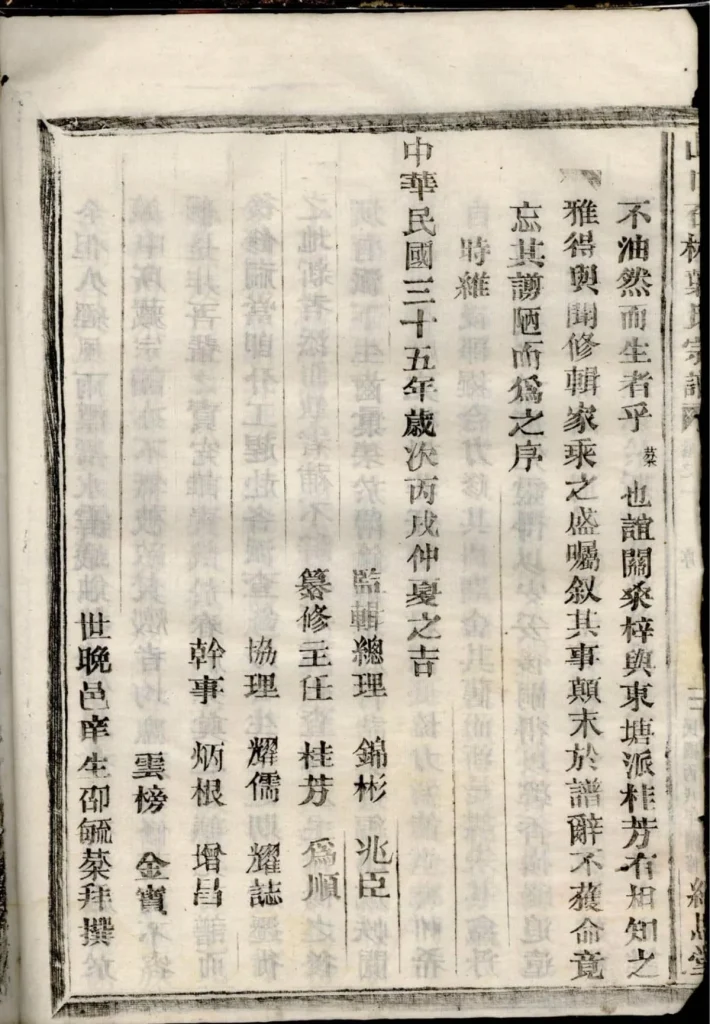 林葉氏宗譜 序 三
不油然而生者乎棻也誼關桑梓與東塘派桂芳有相知之
雅得與聞修輯家乘之盛囑叙其事顛末於譜辭不獲命竟
忘其謭陋而爲之序
時維
中華民國三十五年歲次丙戌仲夏之吉
監輯總理 錦彬 兆臣
纂修主任 桂芳 爲順
協理 耀儒 耀誌
幹事 炳根 增昌
雲榜 金寶
世晚邑庠生邵毓棻拜撰